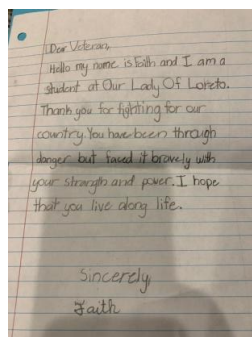 Dear Veteran,
Hello my name is Faith and I am a
student at Our Lady Of Loreto.
Thank you for fighting for our
country. You have been through
danger but faced it bravely with
your strength and power. I hope
that you live along life.
Sincerely,
Faith